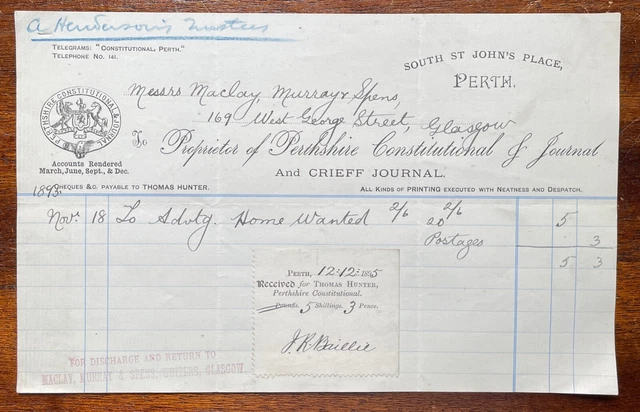 A Henderson's Trustees.
TELEGRAMS: "CONSTITUTIONAL, PERTH."
TELEPHONE NO. 141.
SOUTH ST JOHN'S PLACE,
PERTH.
Messrs Maclay, Murray & Spens,
169 West George Street, Glasgow
PERTHSHIRE CONSTITUTIONAL & JOURNAL
To Proprietor of Perthshire Constitutional & Journal
AND CRIEFF JOURNAL.
Accounts Rendered
March, June, Sept., & Dec.
CHEQUES &C. PAYABLE TO THOMAS HUNTER.
ALL KINDS OF PRINTING EXECUTED WITH NEATNESS AND DESPATCH.
Novr 18 To Advtg. Home Wanted 2/6 2/6 5
Postages 3
5 3
PERTH, 12:12: 1895
Received for THOMAS HUNTER,
Perthshire Constitutional.
Pounds, 5 Shillings, 3 Pence.
J.R. Baillie
FOR DISCHARGE AND RETURN TO
MACLAY, MURRAY & SPENS, WRITERS, GLASGOW.